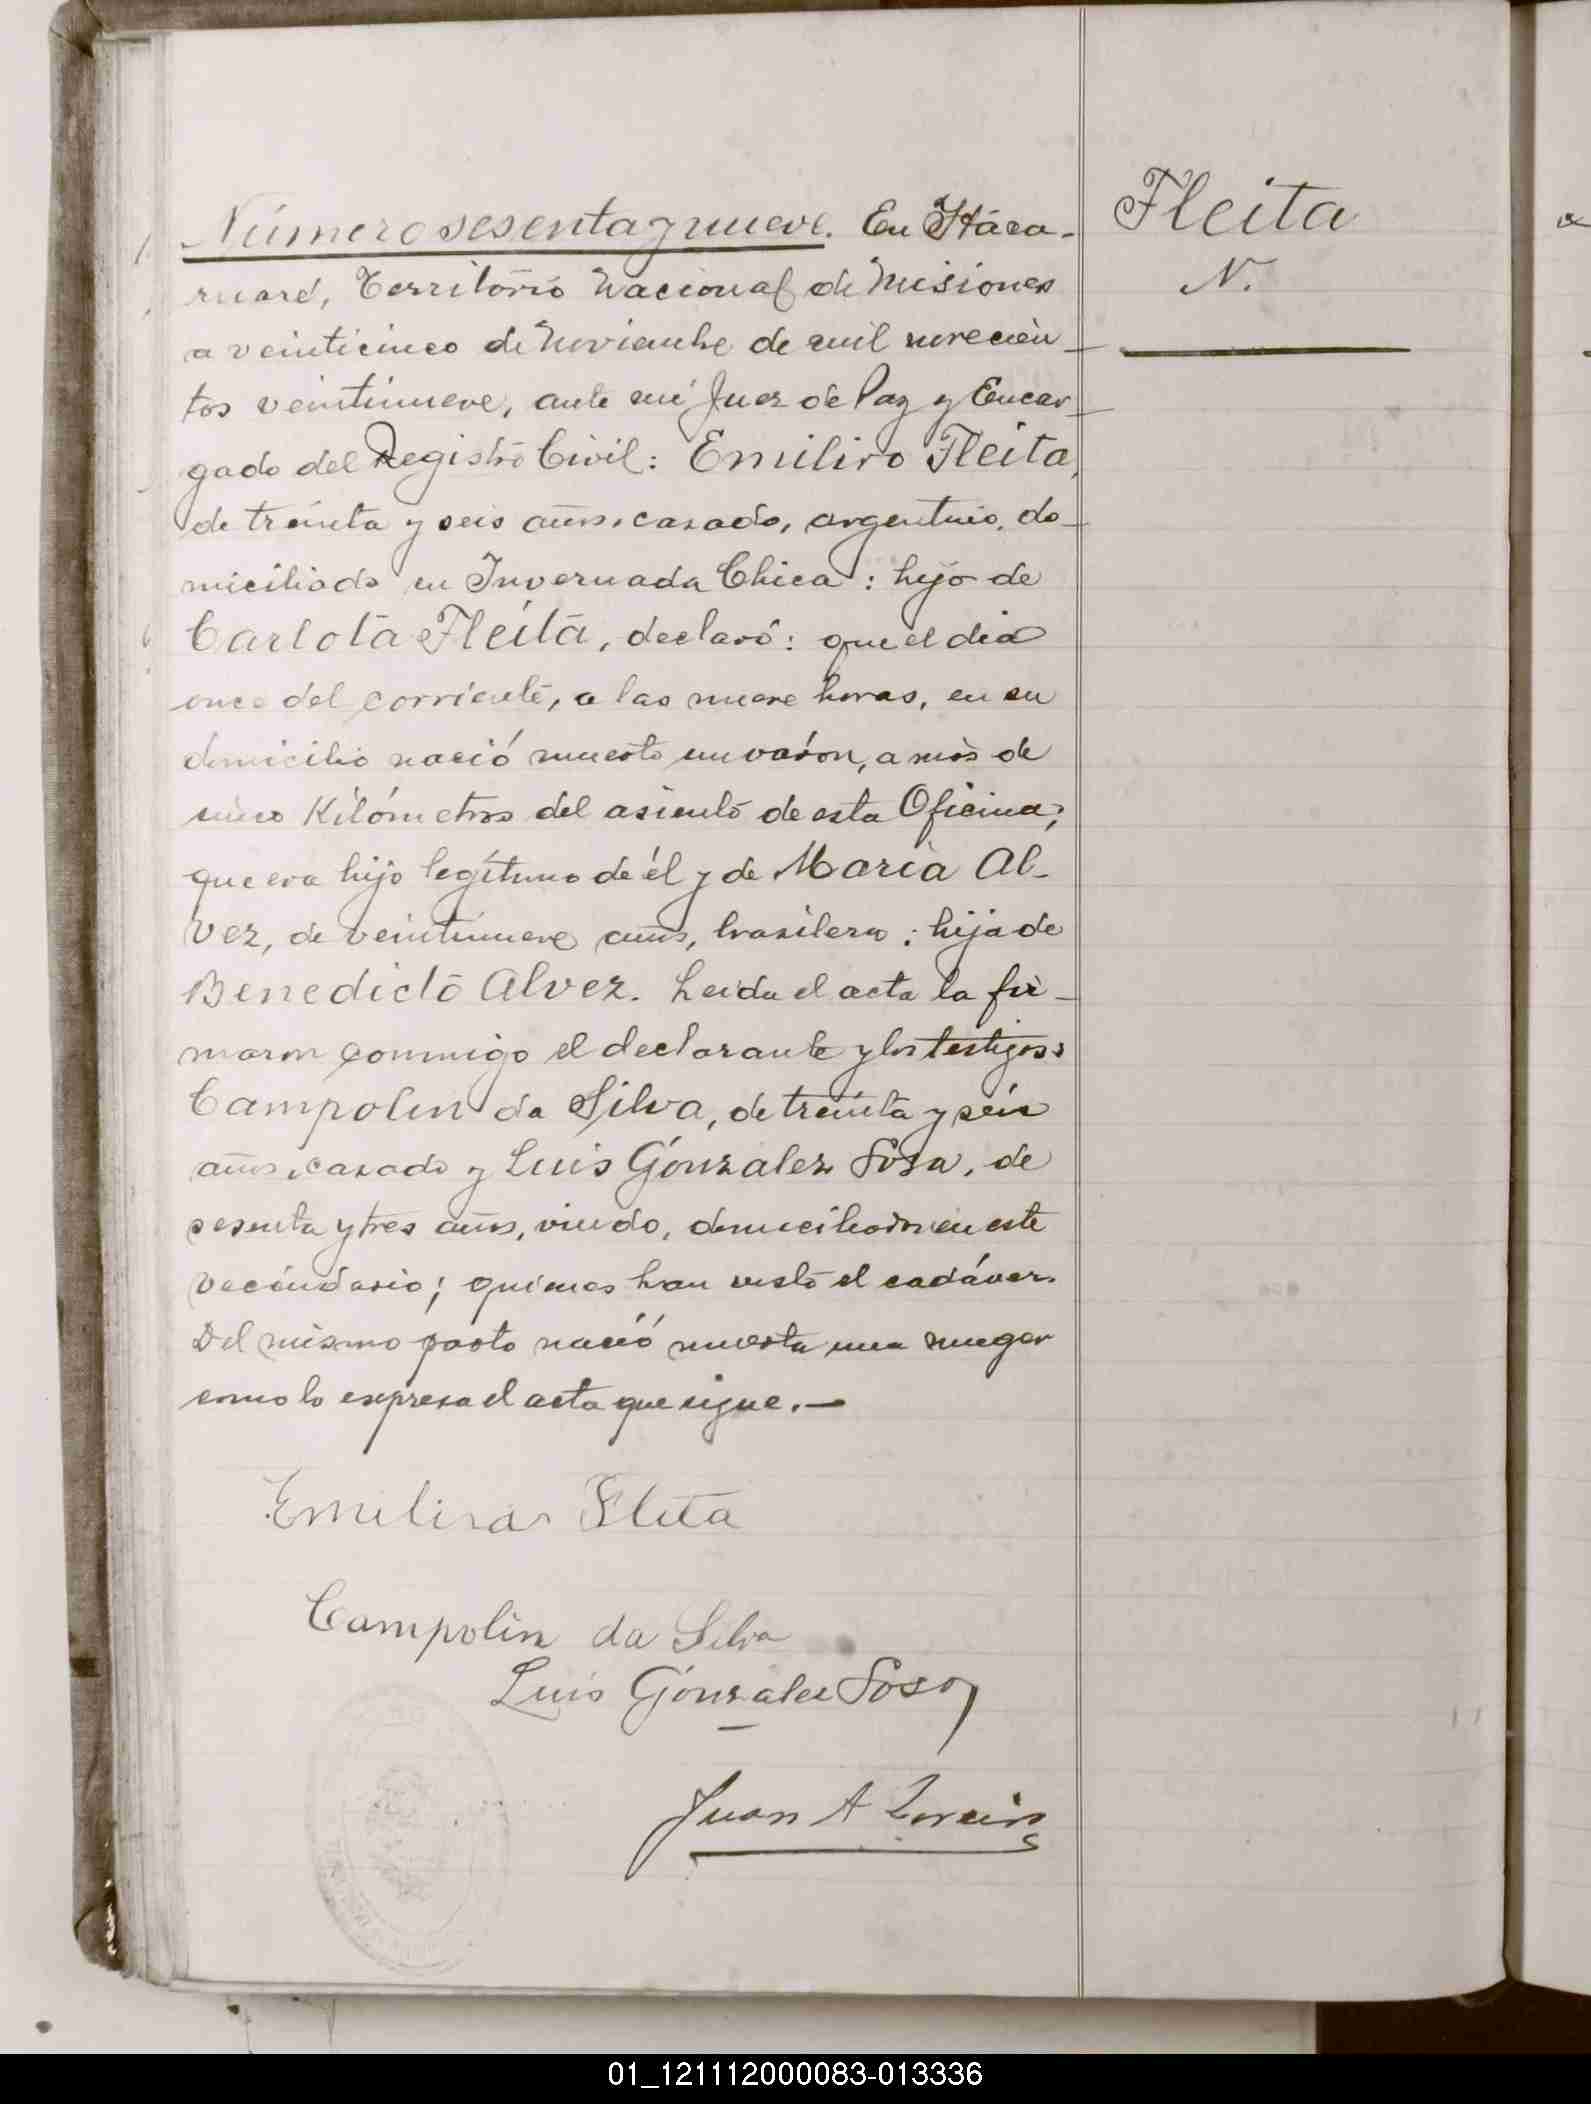 Número sesenta y nueve. En Itáca-
ruaré, Territorio Nacional de Misiones
a veinticinco de Noviembre de mil novecien-
tos veintinueve, ante mí Juez de Paz y Encar-
gado del Registro Civil: Emiliro Fleita,
de treinta y seis años, casado, argentino, do-
miciliado en Invernada Chica: hijo de
Carlota Fleita, declaró: que el dia
once del corriente, a las nueve horas, en su
domicilio nació muerto un varón, a más de
cinco Kilómetros del asiento de esta Oficina;
que era hijo legítimo de él y de Maria Al-
vez, de veintinueve años, brasilera: hija de
Benedicto Alvez. Leida el acta la fir-
maron conmigo el declarante y los testigos:
Campolin da Silva, de treinta y seis
años, casado y Luis Gónzalez Sosa, de
sesenta y tres años, viudo, domiciliados en este
vecindario; quienes han visto el cadáver.
Del mismo parto nació muerta una muger
como lo expresa el acta que sigue.—
Emiliro Fleita
Campolin da Silva
Luis Gónzalez Sosa
Juan A
Fleita
N.
01_121112000083-013336